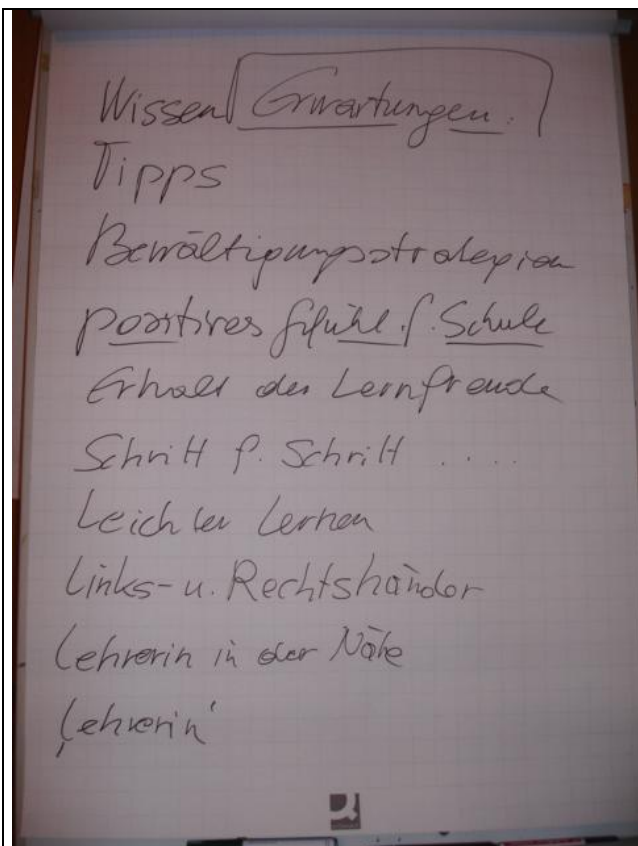 Wissen Erwartungen.
Tipps
Bewältigungsstrategien
positives Gefühl f. Schule
Erhalt der Lernfreude
Schritt f. Schritt ....
Leichter Lernen
Links- u. Rechtshänder
Lehrerin in der Nähe
'Lehrerin'